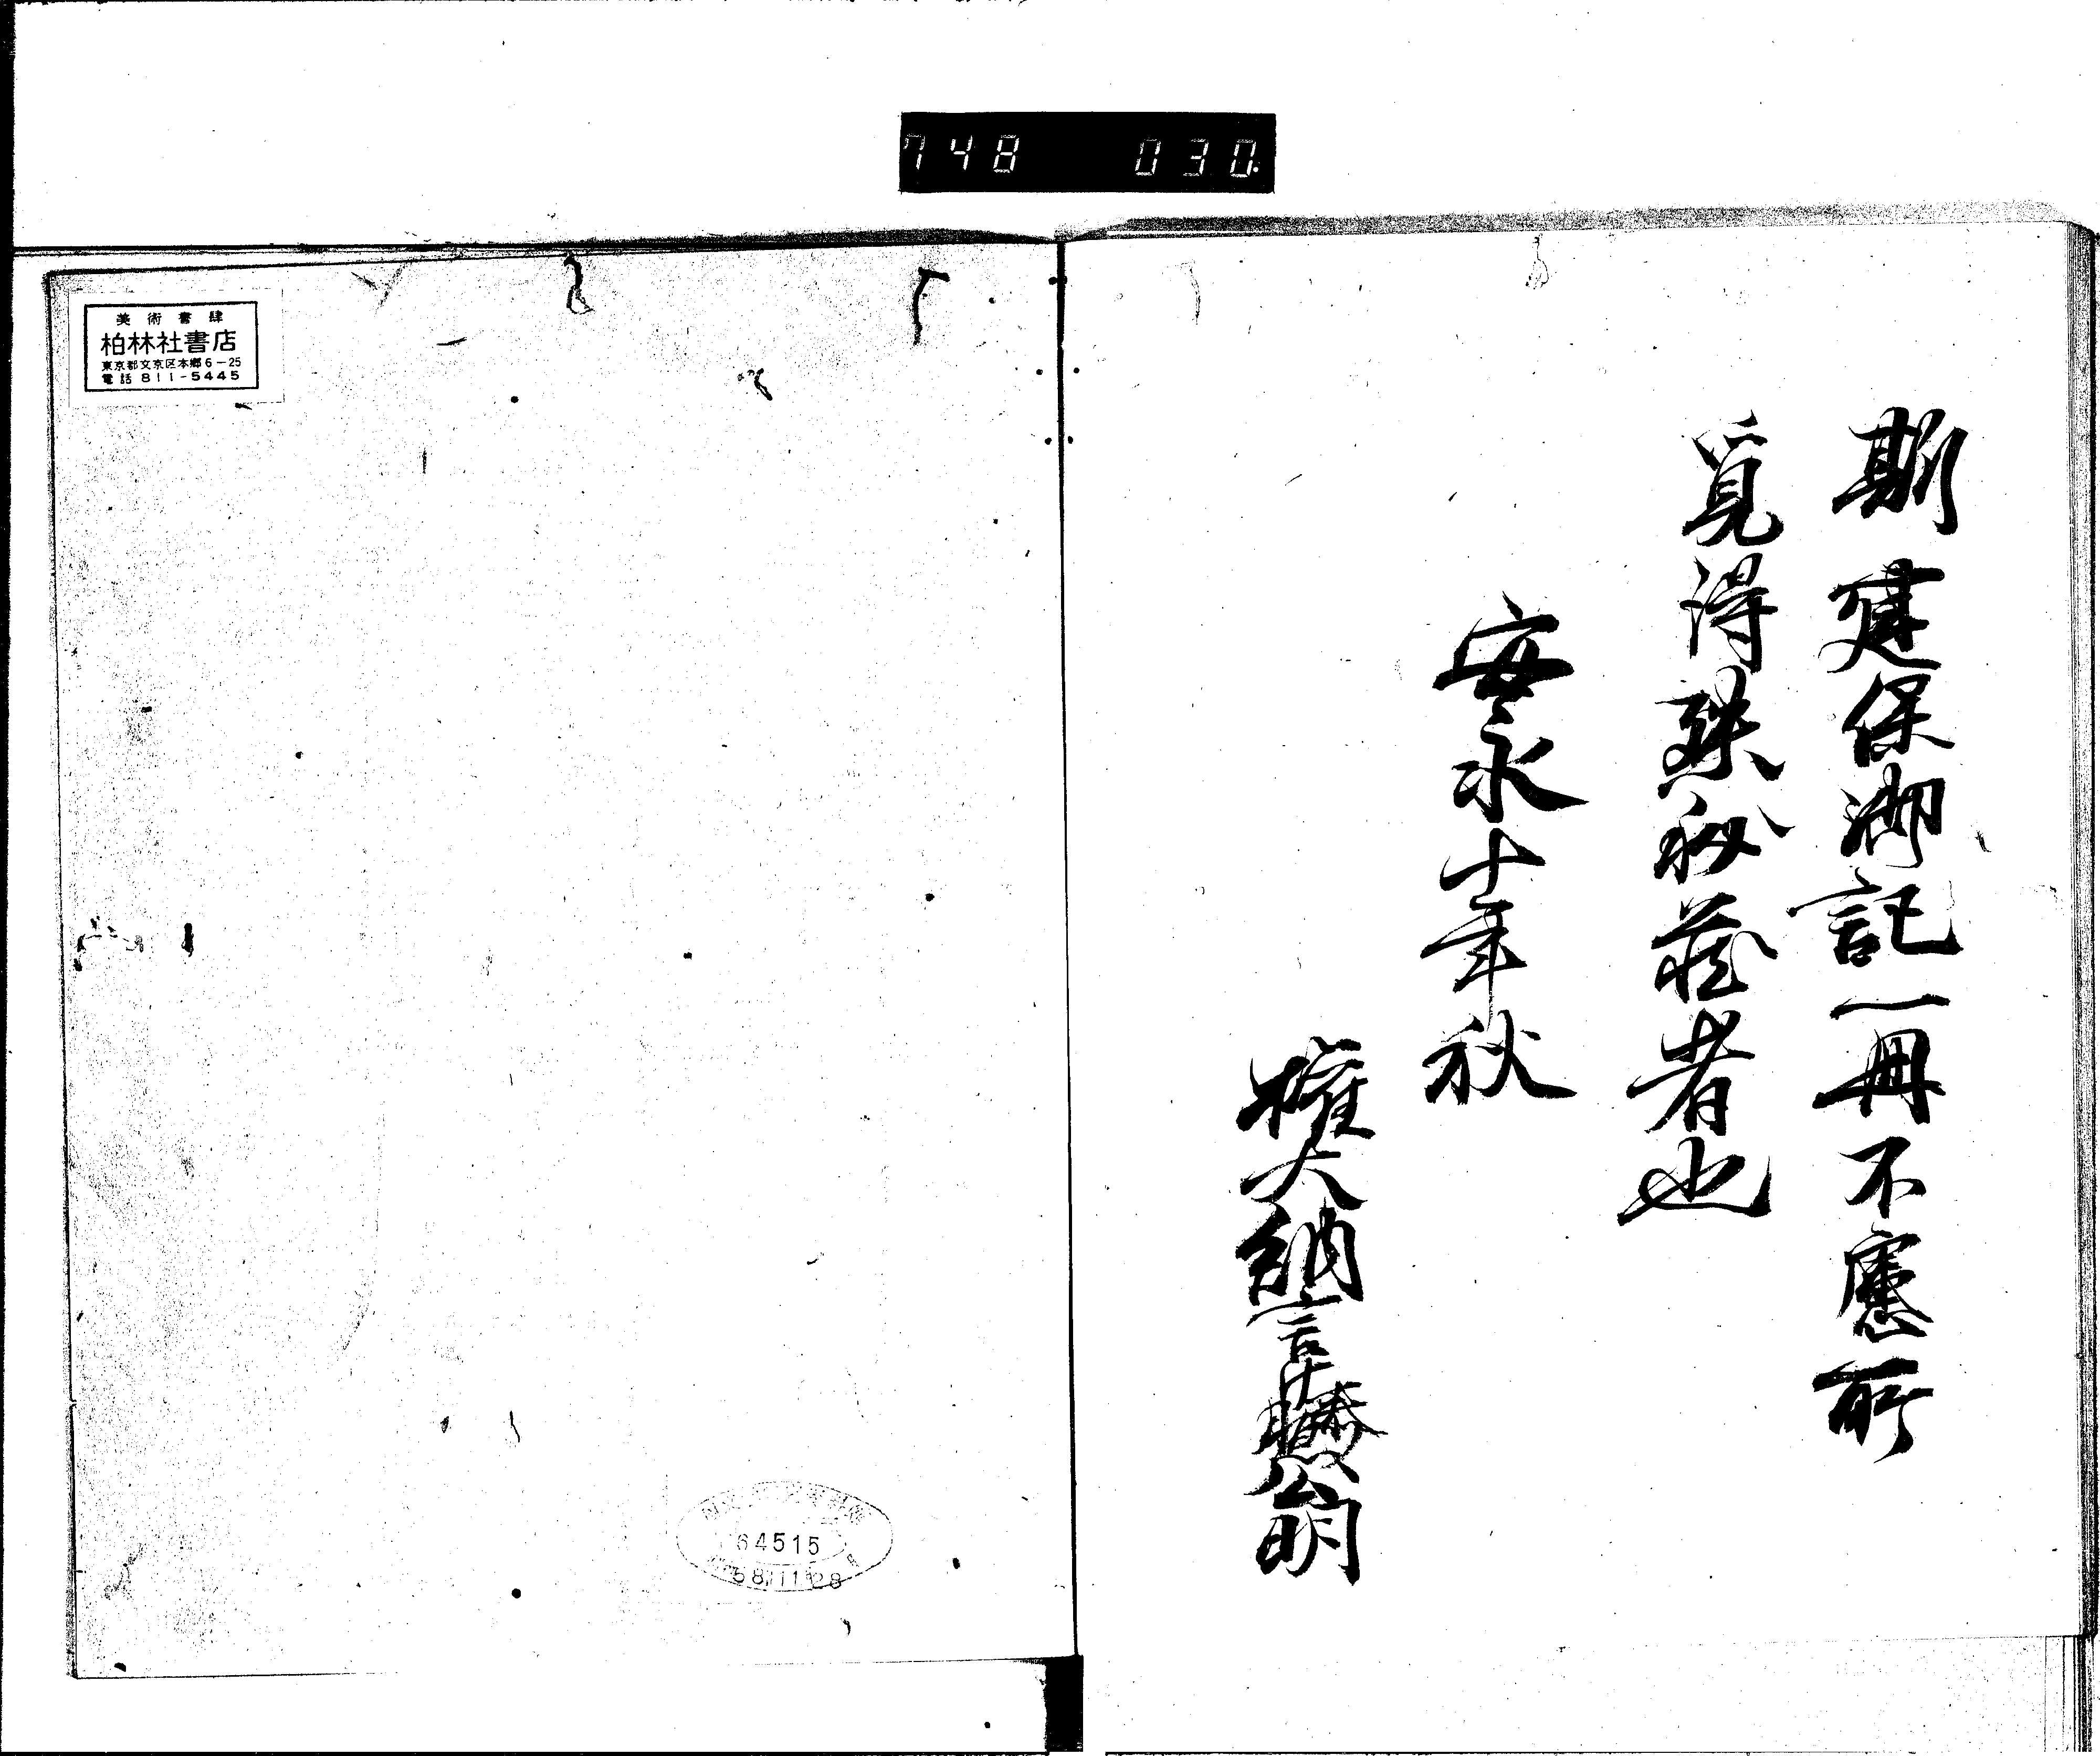 748 030
斯建保御記一冊不慮所
覓得殊秘蔵者也
安永十年秋
権大納言藤公明
美術書肆
柏林社書店
東京都文京区本郷6-25
電話 811-5445
64515
58.11.28